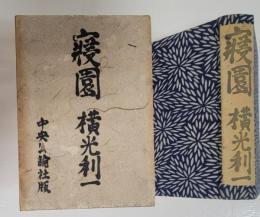 寝園
横光利一
中央公論社版
寝園
横光利一